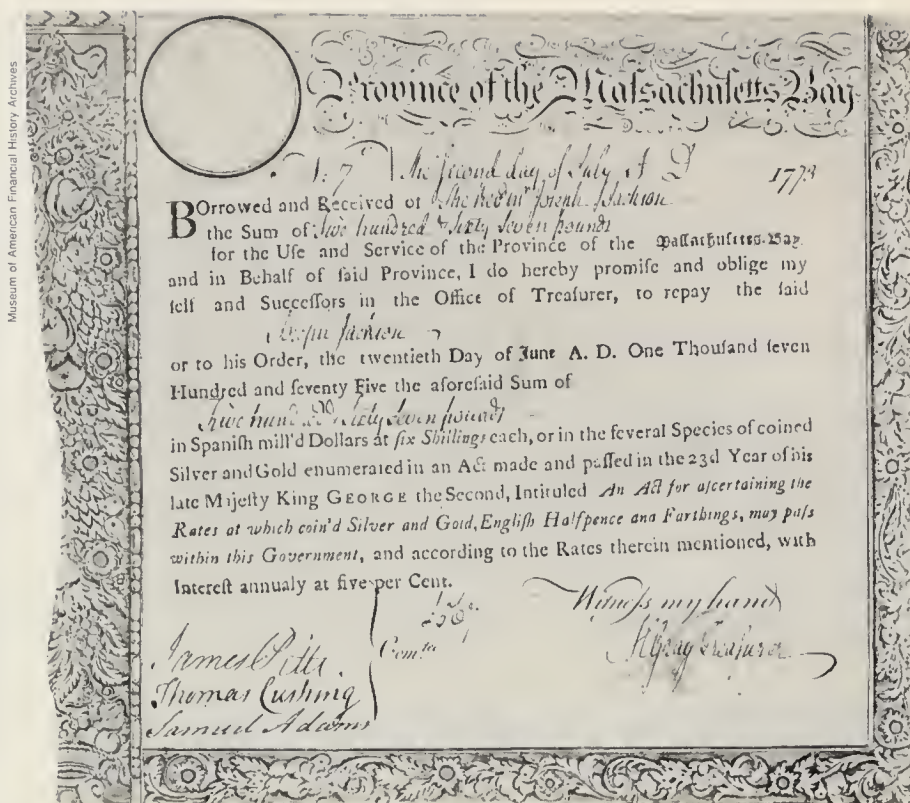 Museum of American Financial History Archives
Province of the Maſsachuſetts Bay
N. 7 The ſecond day of July A D 1773
BOrrowed and Received of Joseph Jackson
the Sum of Five hundred & Sixty ſeven pounds
for the Uſe and Service of the Province of the Maſſachuſetts-Bay
and in Behalf of ſaid Province, I do hereby promiſe and oblige my
ſelf and Succeſſors in the Office of Treaſurer, to repay the ſaid
Joseph Jackson
or to his Order, the twentieth Day of June A. D. One Thouſand ſeven
Hundred and ſeventy Five the aforeſaid Sum of
Five hundred Sixty ſeven pounds
in Spaniſh mill'd Dollars at ſix Shillings each, or in the ſeveral Species of coined
Silver and Gold enumerated in an Act made and paſſed in the 23d Year of his
late Majeſty King GEORGE the Second, Intituled An Act for aſcertaining the
Rates at which coin'd Silver and Gold, Engliſh Halfpence and Farthings, may paſs
within this Government, and according to the Rates therein mentioned, with
Intereſt annualy at five per Cent.
Witneſs my hand
James Pitts
Thomas Cushing
Samuel Adams
Comtee
HGray Treaſurer